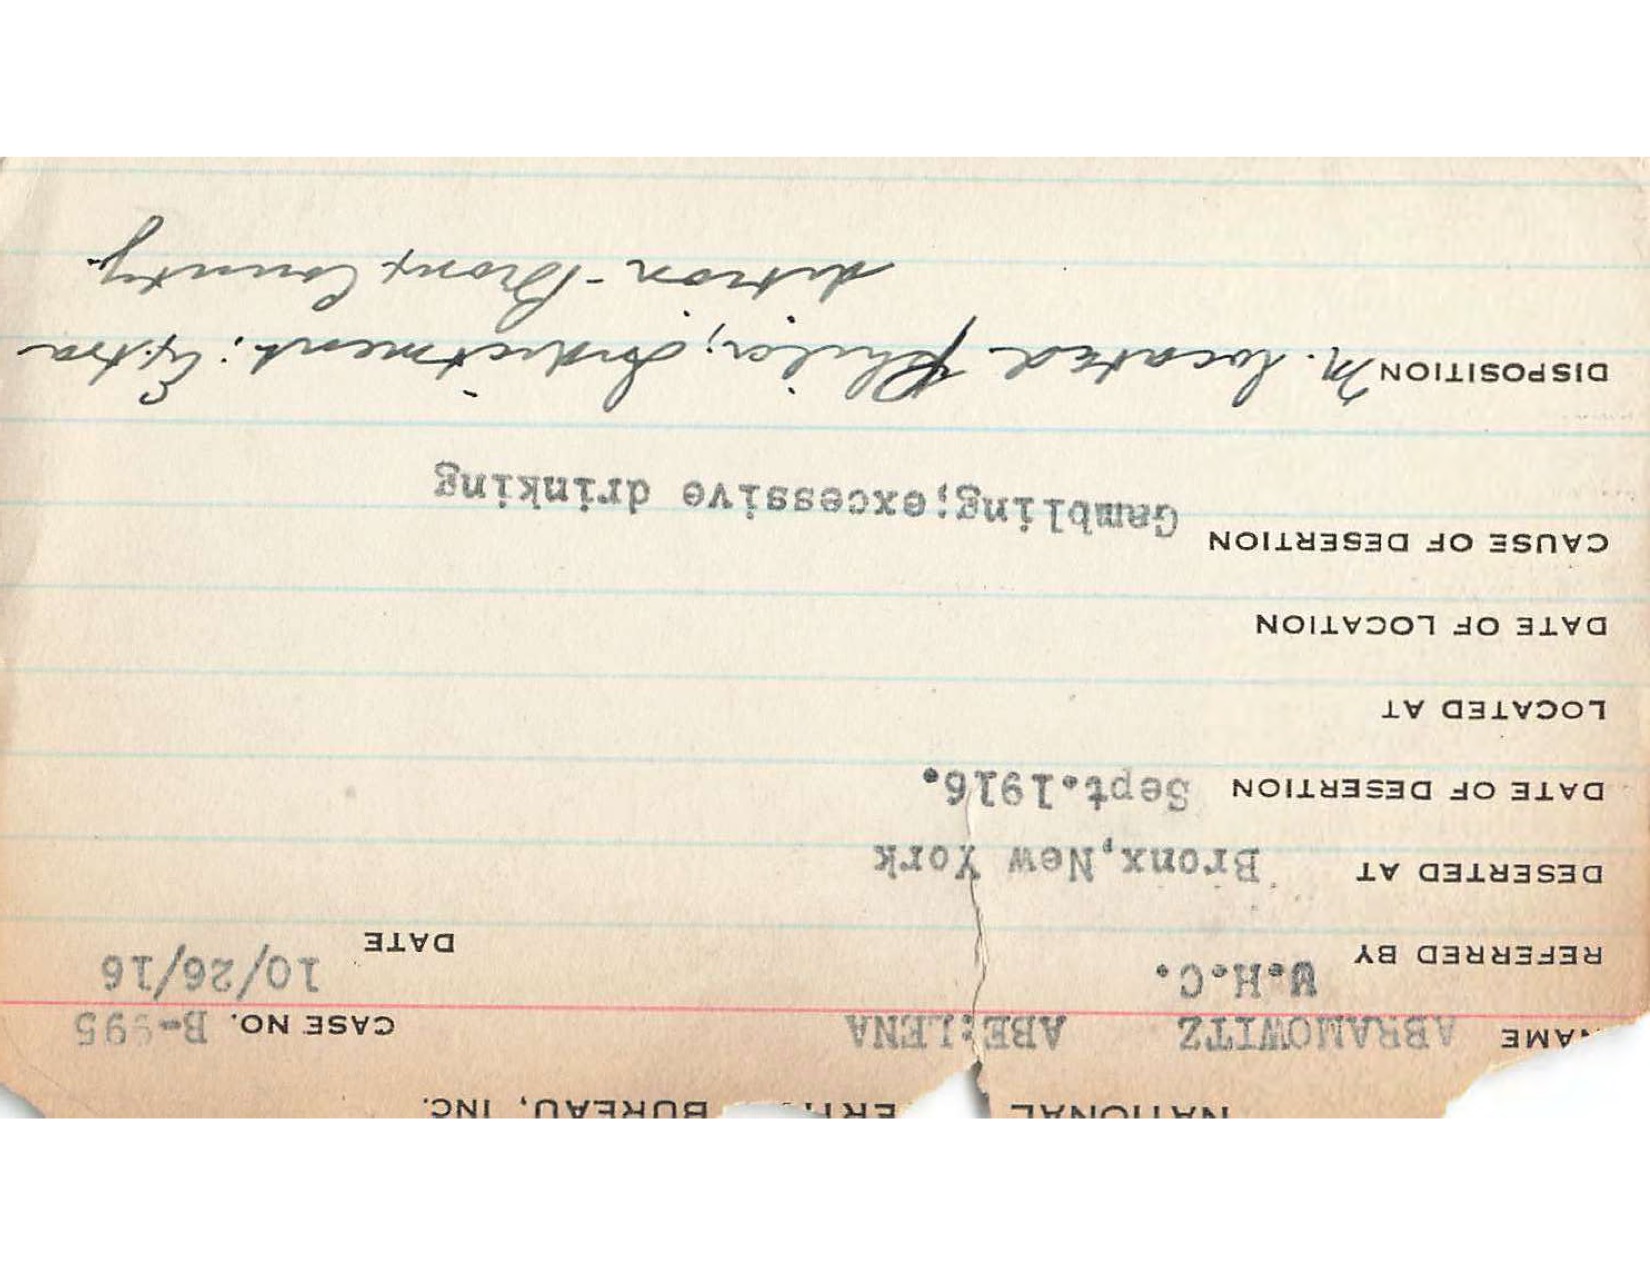 NATIONAL BUREAU, INC.
NAME ABRAMOWITZ ABE:LENA CASE NO. B-995
REFERRED BY U.H.C. DATE 10/26/16
DESERTED AT Bronx,New York
DATE OF DESERTION Sept.1916.
LOCATED AT
DATE OF LOCATION
CAUSE OF DESERTION Gambling;excessive drinking
DISPOSITION M. located Phila; Indictment: Extra
dition - Bronx County.